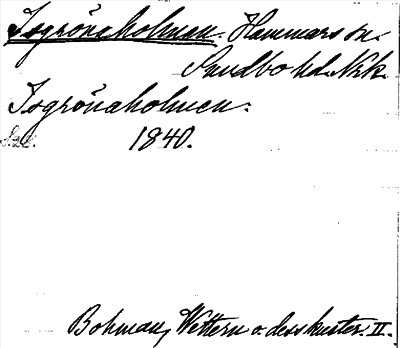 Isgrönaholmen. Hammars sn.
Sundbo hd. Nrk.
Isgrönaholmen.
1840.
Bohman, Wettern o. dess kuster. II.